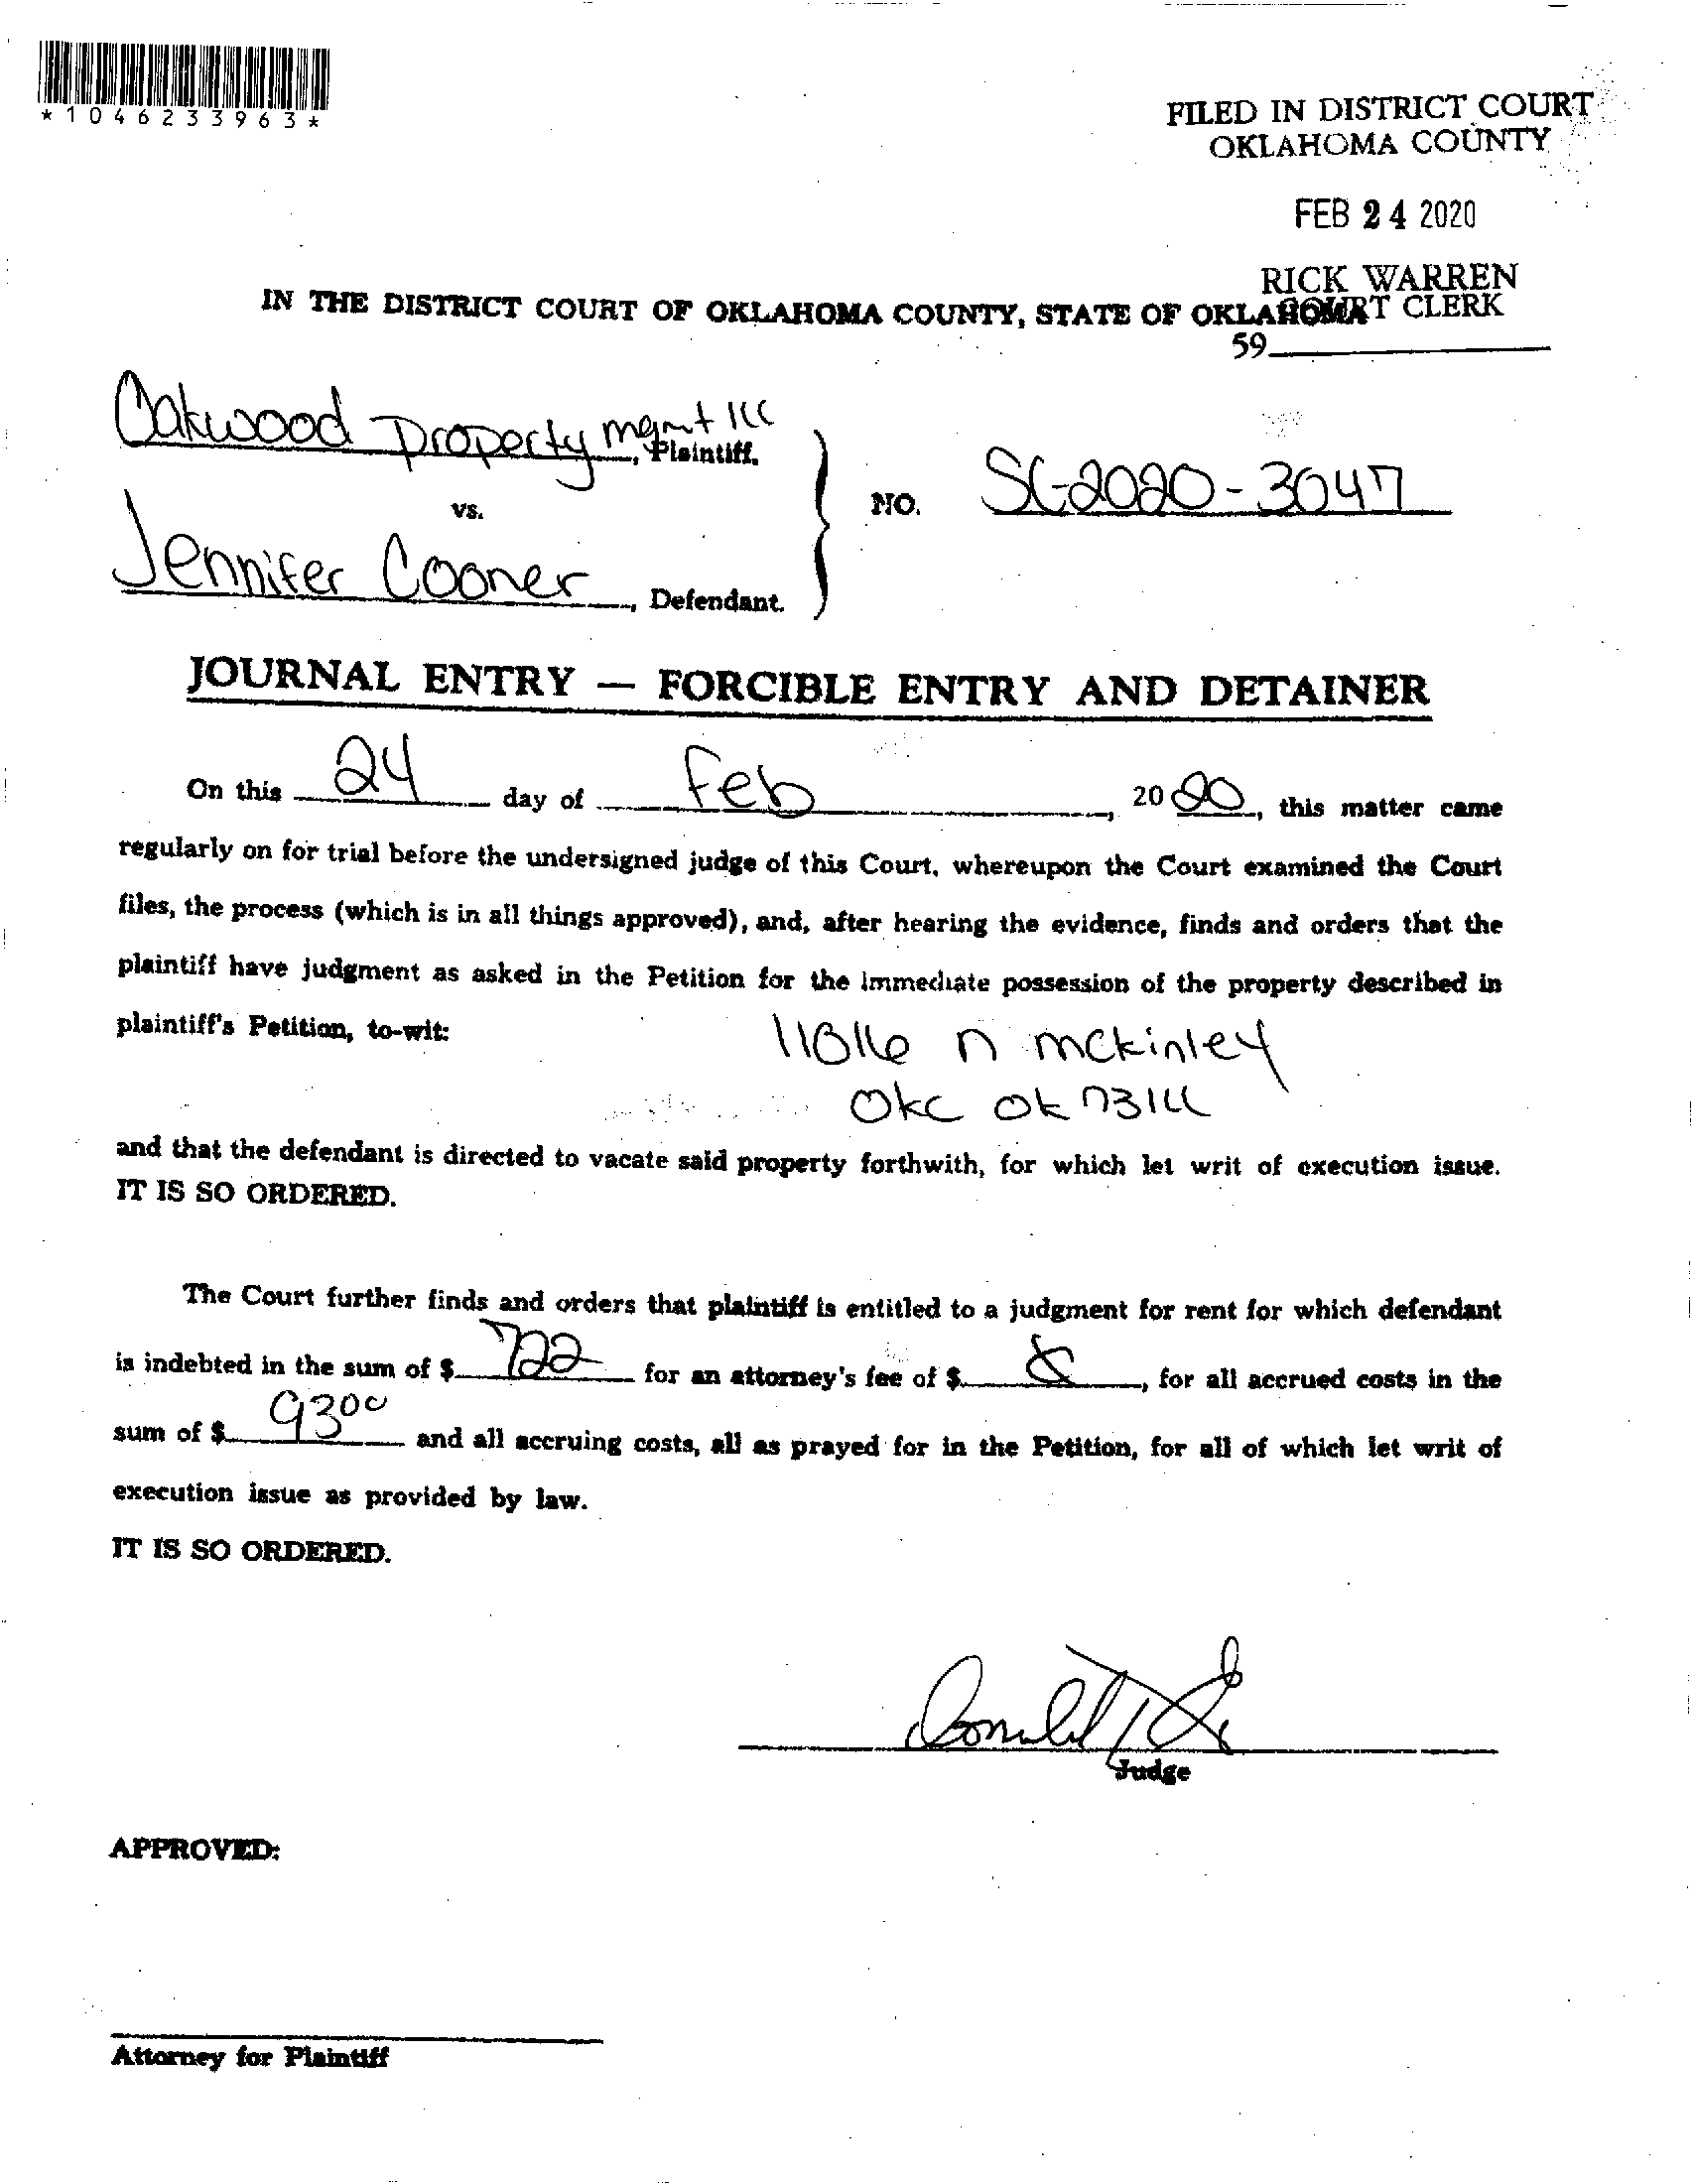 *1046233963*
FILED IN DISTRICT COURT
OKLAHOMA COUNTY
FEB 24 2020
RICK WARREN
COURT CLERK
59
IN THE DISTRICT COURT OF OKLAHOMA COUNTY, STATE OF OKLAHOMA
Oakwood Property mgmt llc
, Plaintiff.
vs.
NO. SC-2020-3047
Jennifer Cooner, Defendant.
JOURNAL ENTRY — FORCIBLE ENTRY AND DETAINER
On this 24 day of Feb, 2020, this matter came
regularly on for trial before the undersigned judge of this Court, whereupon the Court examined the Court
files, the process (which is in all things approved), and, after hearing the evidence, finds and orders that the
plaintiff have judgment as asked in the Petition for the immediate possession of the property described in
plaintiff's Petition, to-wit: n mckinley
OKC OK
and that the defendant is directed to vacate said property forthwith, for which let writ of execution issue.
IT IS SO ORDERED.
The Court further finds and orders that plaintiff is entitled to a judgment for rent for which defendant
is indebted in the sum of $ 722 for an attorney's fee of $ , for all accrued costs in the
sum of $ 9300 and all accruing costs, all as prayed for in the Petition, for all of which let writ of
execution issue as provided by law.
IT IS SO ORDERED.
Judge
APPROVED:
Attorney for Plaintiff